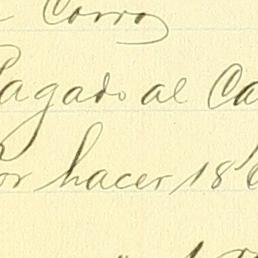 Corro
Pagado al Ca
Por hacer 18